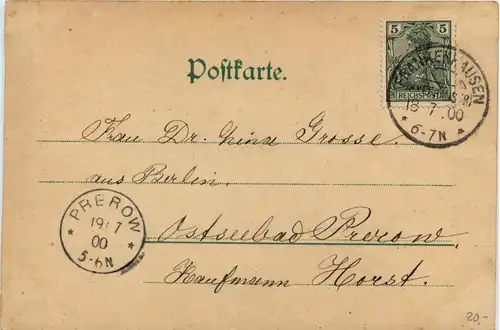 5 5
REICHSPOST
FRANKENHAUSEN
18 7 .00
* 6-7N *
Postkarte.
Frau Dr. Grosse.
aus Berlin.
Ostseebad Prerow.
Kaufmann Horst.
PREROW
19/7
00
* 5-6N *
20,-